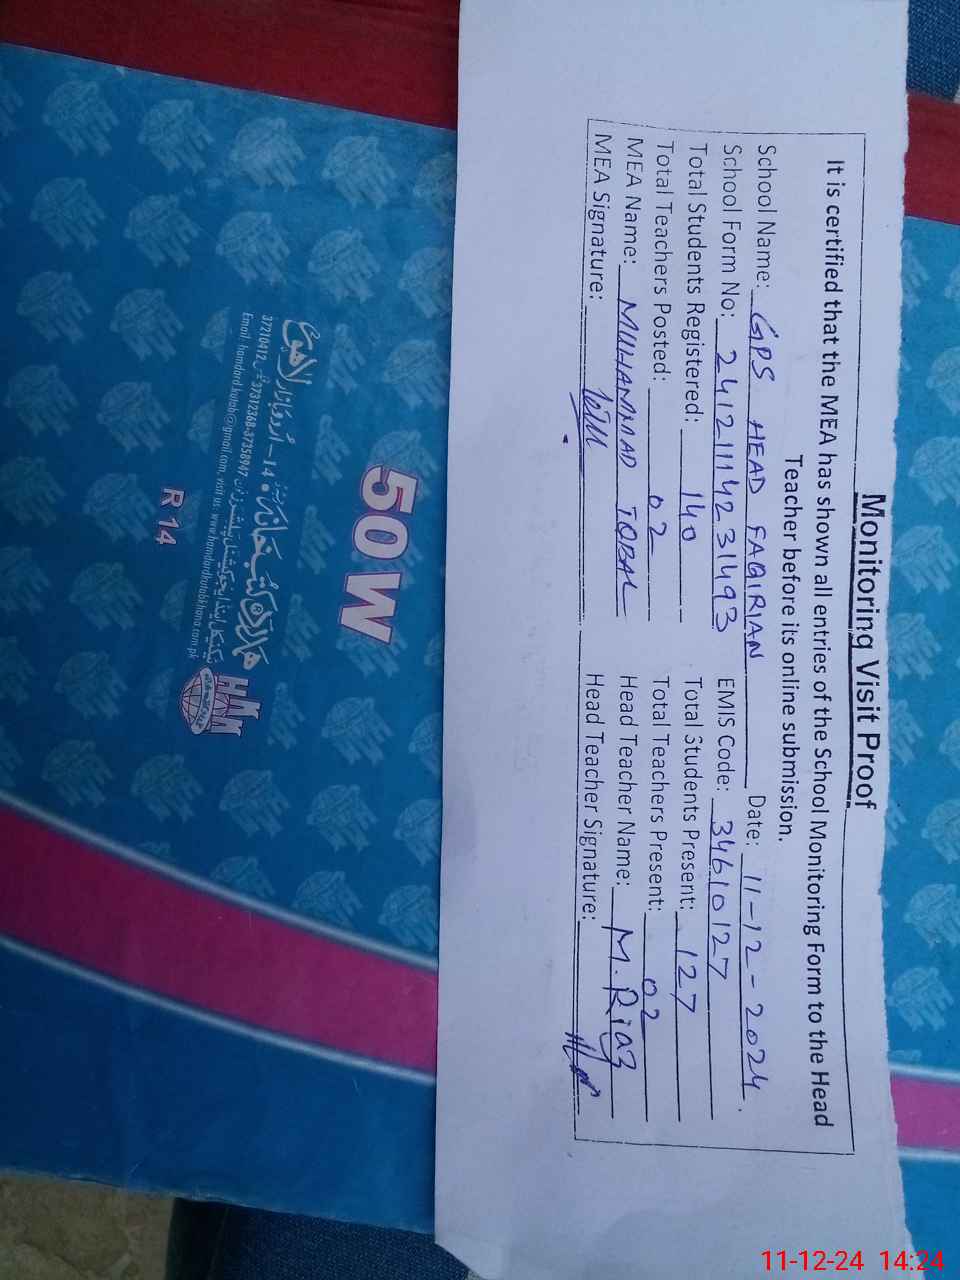 Monitoring Visit Proof
It is certified that the MEA has shown all entries of the School Monitoring Form to the Head
Teacher before its online submission.
School Name: GPS HEAD FAQIRIAN Date: 11-12-2024.
School Form No: 24121114231493 EMIS Code: 34610127
Total Students Registered: 140 Total Students Present: 127
Total Teachers Posted: 02 Total Teachers Present: 02
MEA Name: MUHAMMAD IQBAL Head Teacher Name: M. Riaz
MEA Signature: Head Teacher Signature:
50W
ہمدرد کتب خانہ 14- اردو بازار لاہور
37210412 فیکس 37312368-37358947 فون
Email: hamdard.kutab@gmail.com, visit us: www.hamdardkutabkhana.com.pk
HKK
R 14
11-12-24 14:24